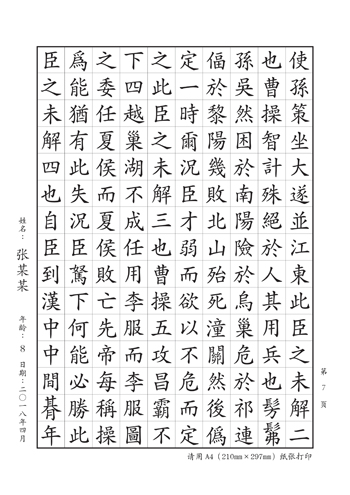 使孫策坐大遂並江東此臣之未解二
也曹操智計殊絕於人其用兵也髣髴
孫吳然困於南陽險於烏巢危於祁連
偪於黎陽幾敗北山殆死潼關然後僞
定一時爾況臣才弱而欲以不危而定
之此臣之未解三也曹操五攻昌霸不
下四越巢湖不成任用李服而李服圖
之委任夏侯而夏侯敗亡先帝每稱操
爲能猶有此失況臣駑下何能必勝此
臣之未解四也自臣到漢中中間朞年
姓名：张某某 年龄：8 日期：二〇一八年四月
第7页
请用A4（210mm×297mm）纸张打印